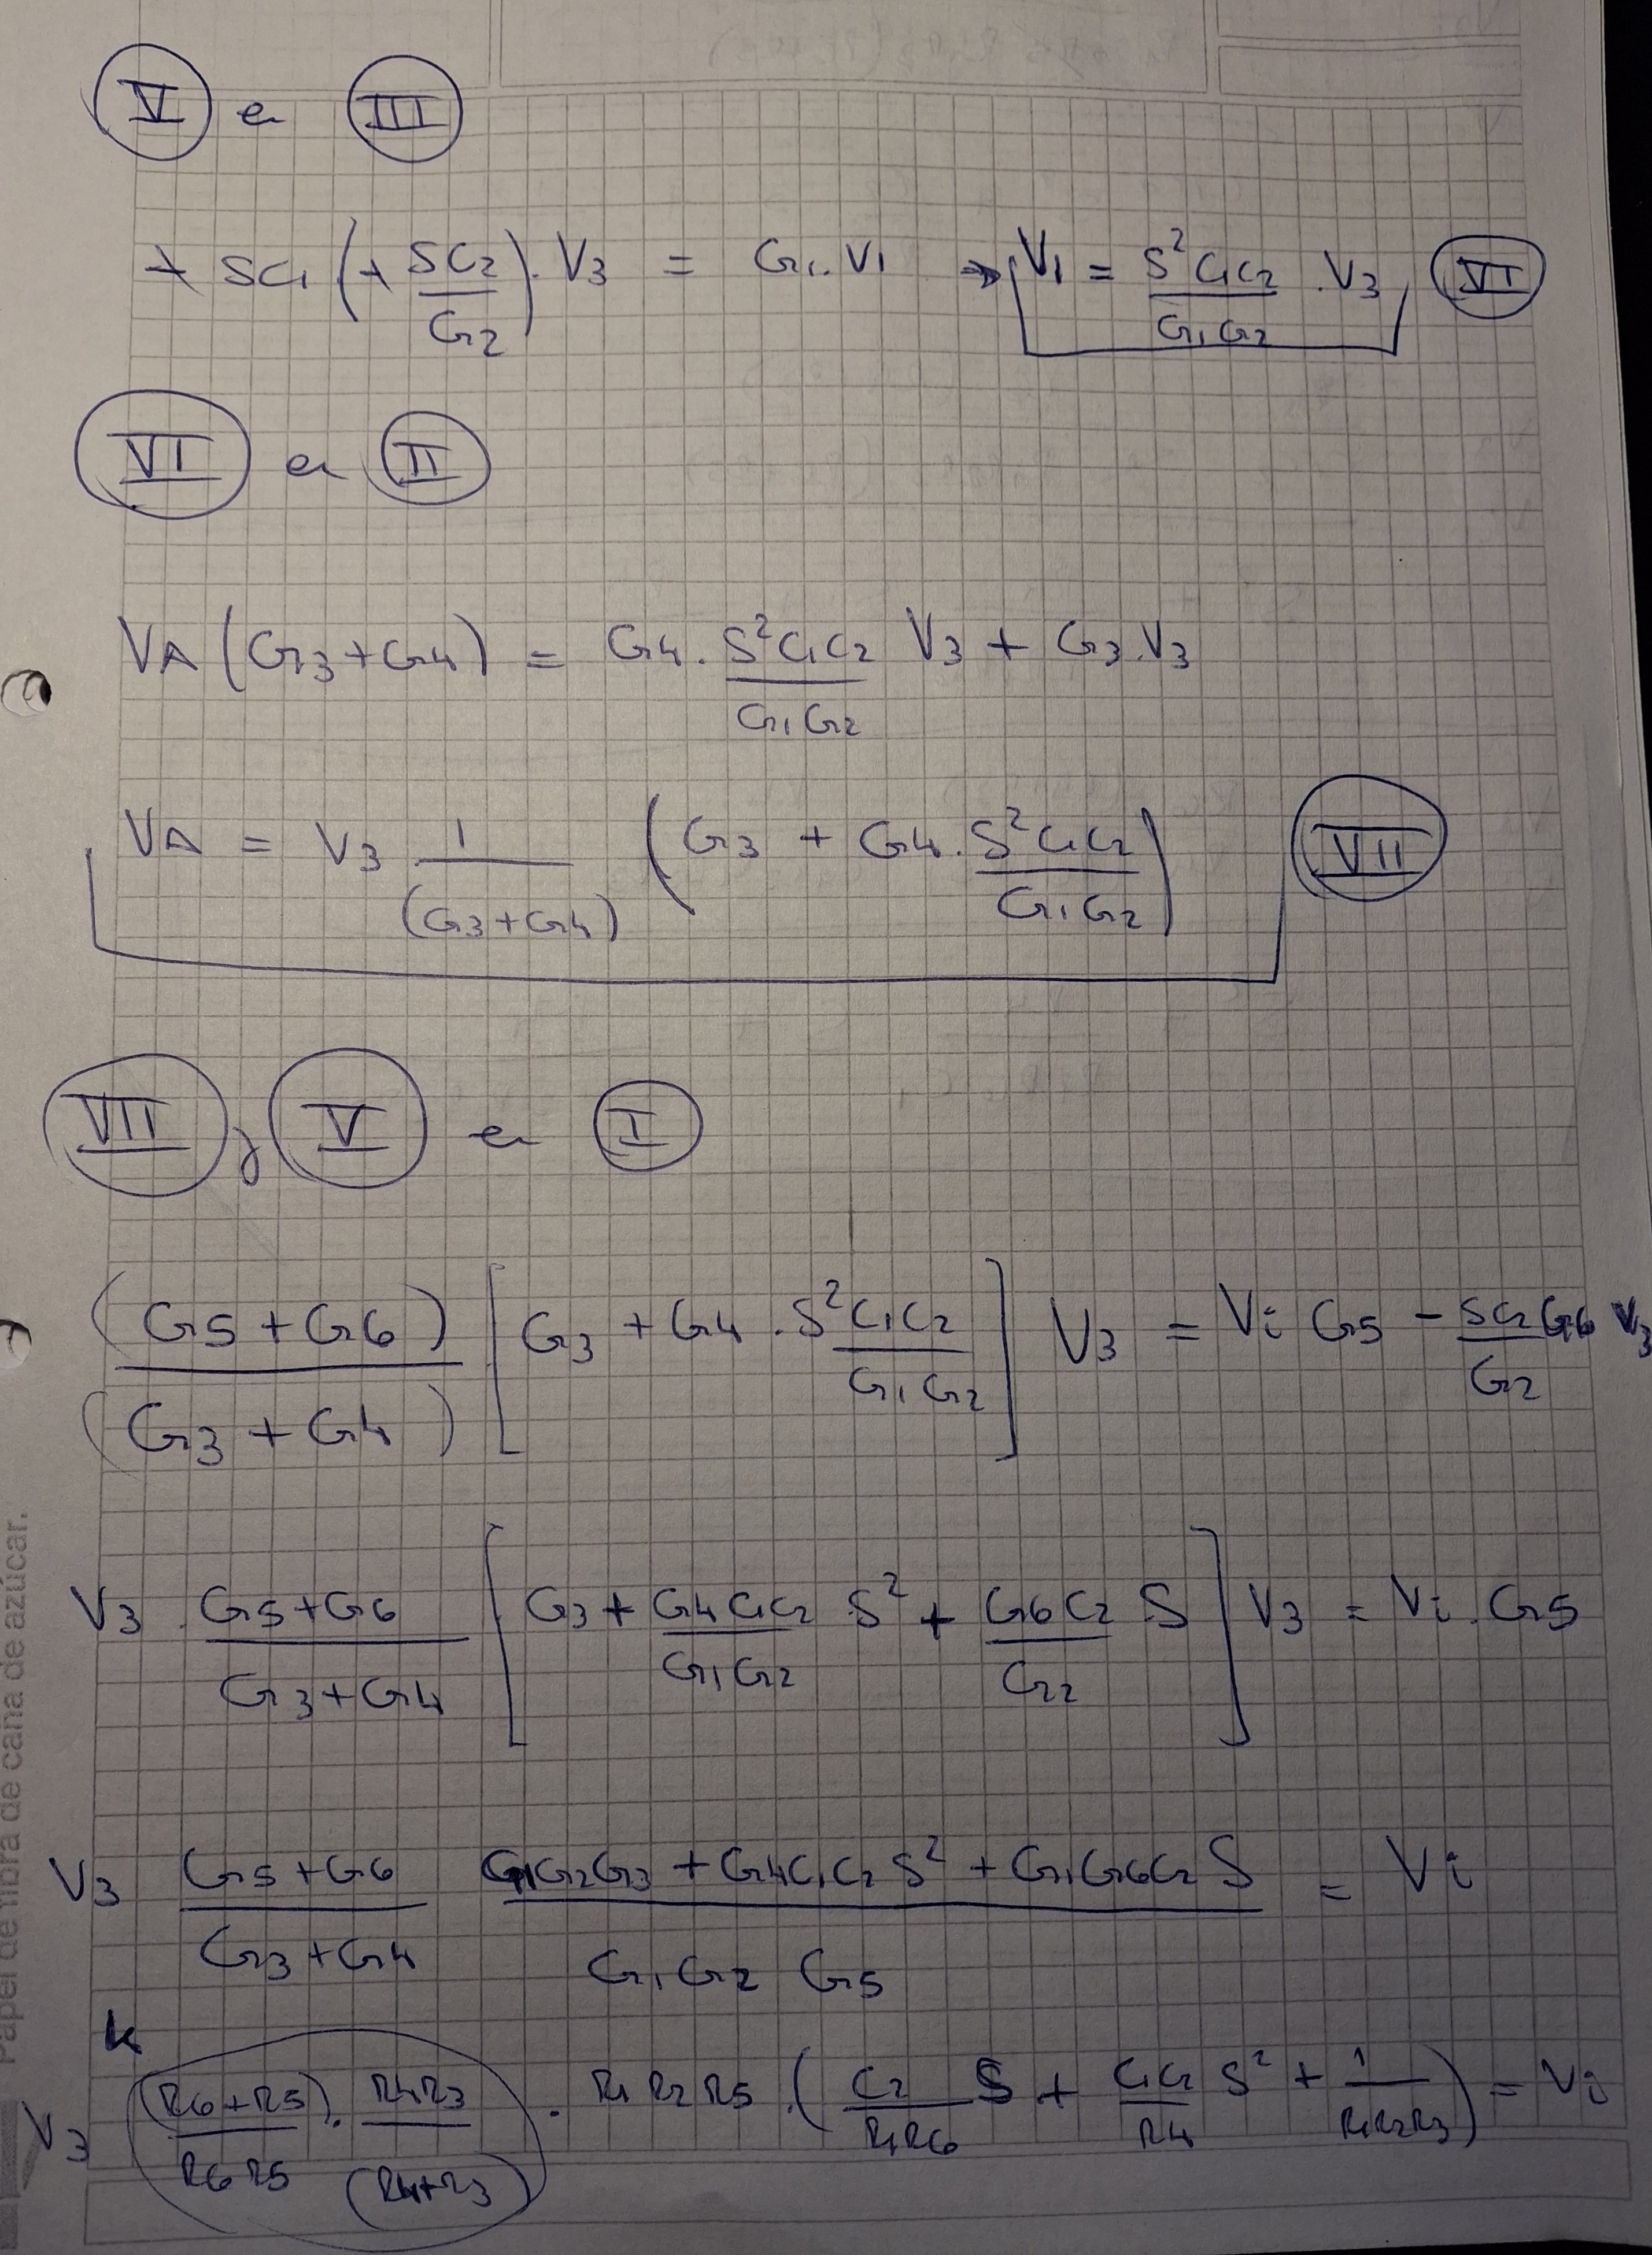 V en III
+ SC1 (+ SC2/G2) . V3 = G1 . V1 → V1 = S²C1C2/G1G2 . V3 VI
VI en II
VA (G3+G4) = G4 . S²C1C2/G1G2 V3 + G3.V3
VA = V3 1/(G3+G4) (G3 + G4 . S²C1C2/G1G2) VII
VII y V en I
(G5+G6)/(G3+G4) [G3 + G4 . S²C1C2/G1G2] V3 = Vi G5 - SC2G6/G2 V3
V3 . G5+G6/G3+G4 [G3 + G4C1C2/G1G2 S² + G6C2/G2 S] V3 = Vi . G5
V3 G5+G6/G3+G4 G1G2G3 + G4C1C2 S² + G1G6C2 S/G1G2 G5 = Vi
K
V3 (R6+R5)/R6R5 . R4R3/(R4+R3) . R1 R2 R5 . (C2/R1R6 S + C1C2/R4 S² + 1/R1R2R3) = Vi
Papel de fibra de caña de azúcar.